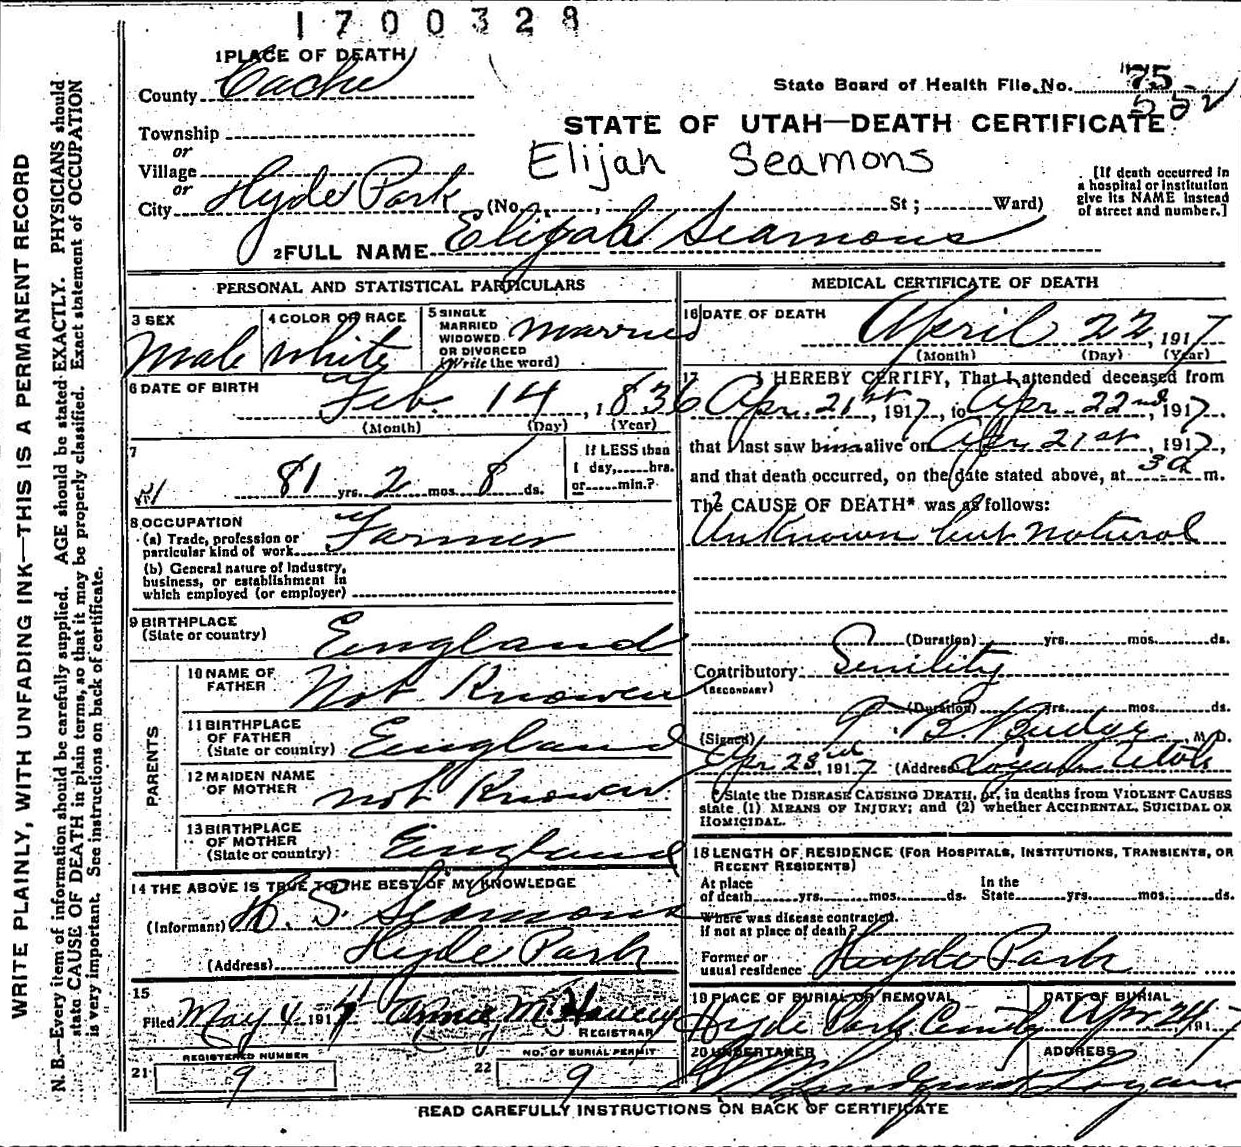 1700328
1 PLACE OF DEATH
County Cache
State Board of Health File No. 75
552
Township
or
Village
or
City Hyde Park
STATE OF UTAH—DEATH CERTIFICATE
Elijah Seamons
(No. St; Ward)
[If death occurred in
a hospital or institution
give its NAME instead
of street and number.]
2 FULL NAME Elijah Seamons
PERSONAL AND STATISTICAL PARTICULARS
3 SEX
Male
4 COLOR OR RACE
White
5 SINGLE
MARRIED
WIDOWED
OR DIVORCED
(Write the word)
Married
6 DATE OF BIRTH
Feb. 14, 1836
(Month) (Day) (Year)
7
81 yrs. 2 mos. 8 ds.
If LESS than
1 day, hrs.
or min.?
8 OCCUPATION
(a) Trade, profession or
particular kind of work Farmer
(b) General nature of Industry,
business, or establishment in
which employed (or employer)
9 BIRTHPLACE
(State or country) England
PARENTS
10 NAME OF
FATHER Not Knowen
11 BIRTHPLACE
OF FATHER
(State or country) England
12 MAIDEN NAME
OF MOTHER not Knowen
13 BIRTHPLACE
OF MOTHER
(State or country) England
14 THE ABOVE IS TRUE TO THE BEST OF MY KNOWLEDGE
(Informant) H. S. Seamons
(Address) Hyde Park
15
Filed May 4 1917
REGISTRAR
REGISTERED NUMBER
21 9
NO. OF BURIAL PERMIT
22 9
MEDICAL CERTIFICATE OF DEATH
16 DATE OF DEATH
April 22, 1917
(Month) (Day) (Year)
17 I HEREBY CERTIFY, That I attended deceased from
Apr. 21st, 1917, to Apr. 22nd, 1917,
that I last saw him alive on Apr 21st, 1917,
and that death occurred, on the date stated above, at 3 a m.
The CAUSE OF DEATH* was as follows:
Unknown but natural
(Duration) yrs. mos. ds.
Contributory Senility
(SECONDARY)
(Duration) yrs. mos. ds.
(Signed) T. B. Budge, M.D.
Apr 23rd, 1917 (Address) Logan Utah
* State the DISEASE CAUSING DEATH, or, in deaths from VIOLENT CAUSES
state (1) MEANS OF INJURY; and (2) whether ACCIDENTAL, SUICIDAL OR
HOMICIDAL.
18 LENGTH OF RESIDENCE (FOR HOSPITALS, INSTITUTIONS, TRANSIENTS, OR
RECENT RESIDENTS)
At place
of death yrs. mos. ds.
In the
State yrs. mos. ds.
Where was disease contracted,
if not at place of death?
Former or
usual residence Hyde Park
19 PLACE OF BURIAL OR REMOVAL
Hyde Park
DATE OF BURIAL
Apr 24 1917
20 UNDERTAKER
ADDRESS
Logan
READ CAREFULLY INSTRUCTIONS ON BACK OF CERTIFICATE
WRITE PLAINLY, WITH UNFADING INK—THIS IS A PERMANENT RECORD
N. B.—Every item of information should be carefully supplied. AGE should be stated EXACTLY. PHYSICIANS should
state CAUSE OF DEATH in plain terms, so that it may be properly classified. Exact statement of OCCUPATION
is very important. See instructions on back of certificate.